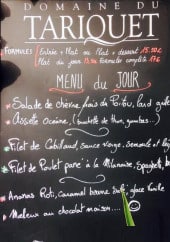 DOMAINE DU
TARIQUET
FORMULES Entrée + Plat ou Plat + dessert 15.90€
Plat du jour formule complète 17€
MENU du JOUR
* Salade de chèvre frais du lard grillé
* Assiette Océane, (
* Filet de Cabillaud, sauce vierge, semoule et
* Filet de Poulet pané à la Milanaise, Spaghetti,
* Ananas Roti, Caramel beurre salé, glace Vanille
* Moelleux au chocolat maison....